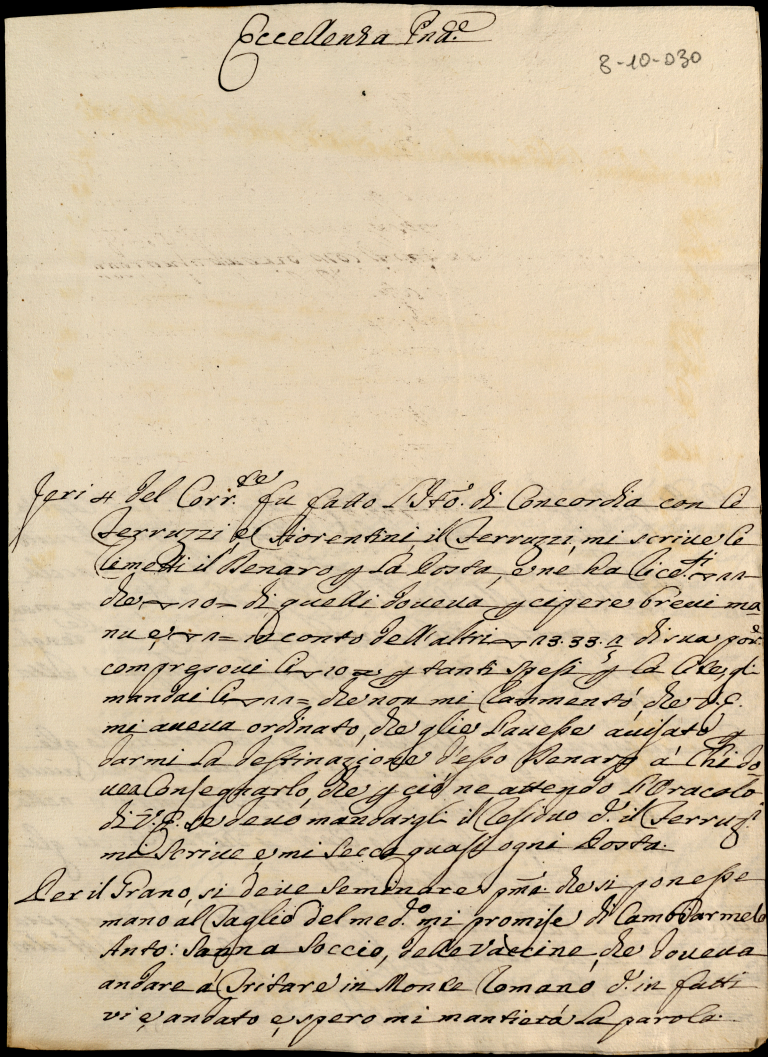 Eccellenza Pnd.e
8-10-030
Jeri 4 del Corr.te fu fatto l'Ito. di Concordia con li
Ferruzzi, e Fiorentini, il Ferruzzi, mi scrive le
rimetti il Denaro p la Posta, e ne ha lice.ti 11
che 10 = di quelli doveva pcipere brevi ma
nu e 1 = a conto dell'altri 13.33. 1/5 di sua por.e
compresovi li 10 = p tanti spesi p la lite, gli
mandai li 11 = che non mi rammentò, che V.E.
mi aveva ordinato, che glie l'avesse avisato p
darmi la destinazione d'esso Denaro à chi do
vea consegnarlo, che p ciò ne attendo l'Oracolo
di V.E. se devo mandargli il residuo d. il Ferruz.i
mi scrive e mi secca quasi ogni Posta.
Per il Grano, si deve seminare pma che si ponesse
mano al Taglio del med.o mi promise di Cambiarmelo
Anto: Sanna Soccio, delle Vaccine, che doveva
andare à Tritare in Monte Romano d. in fatti
vi è andato e spero mi mantierà la parola.